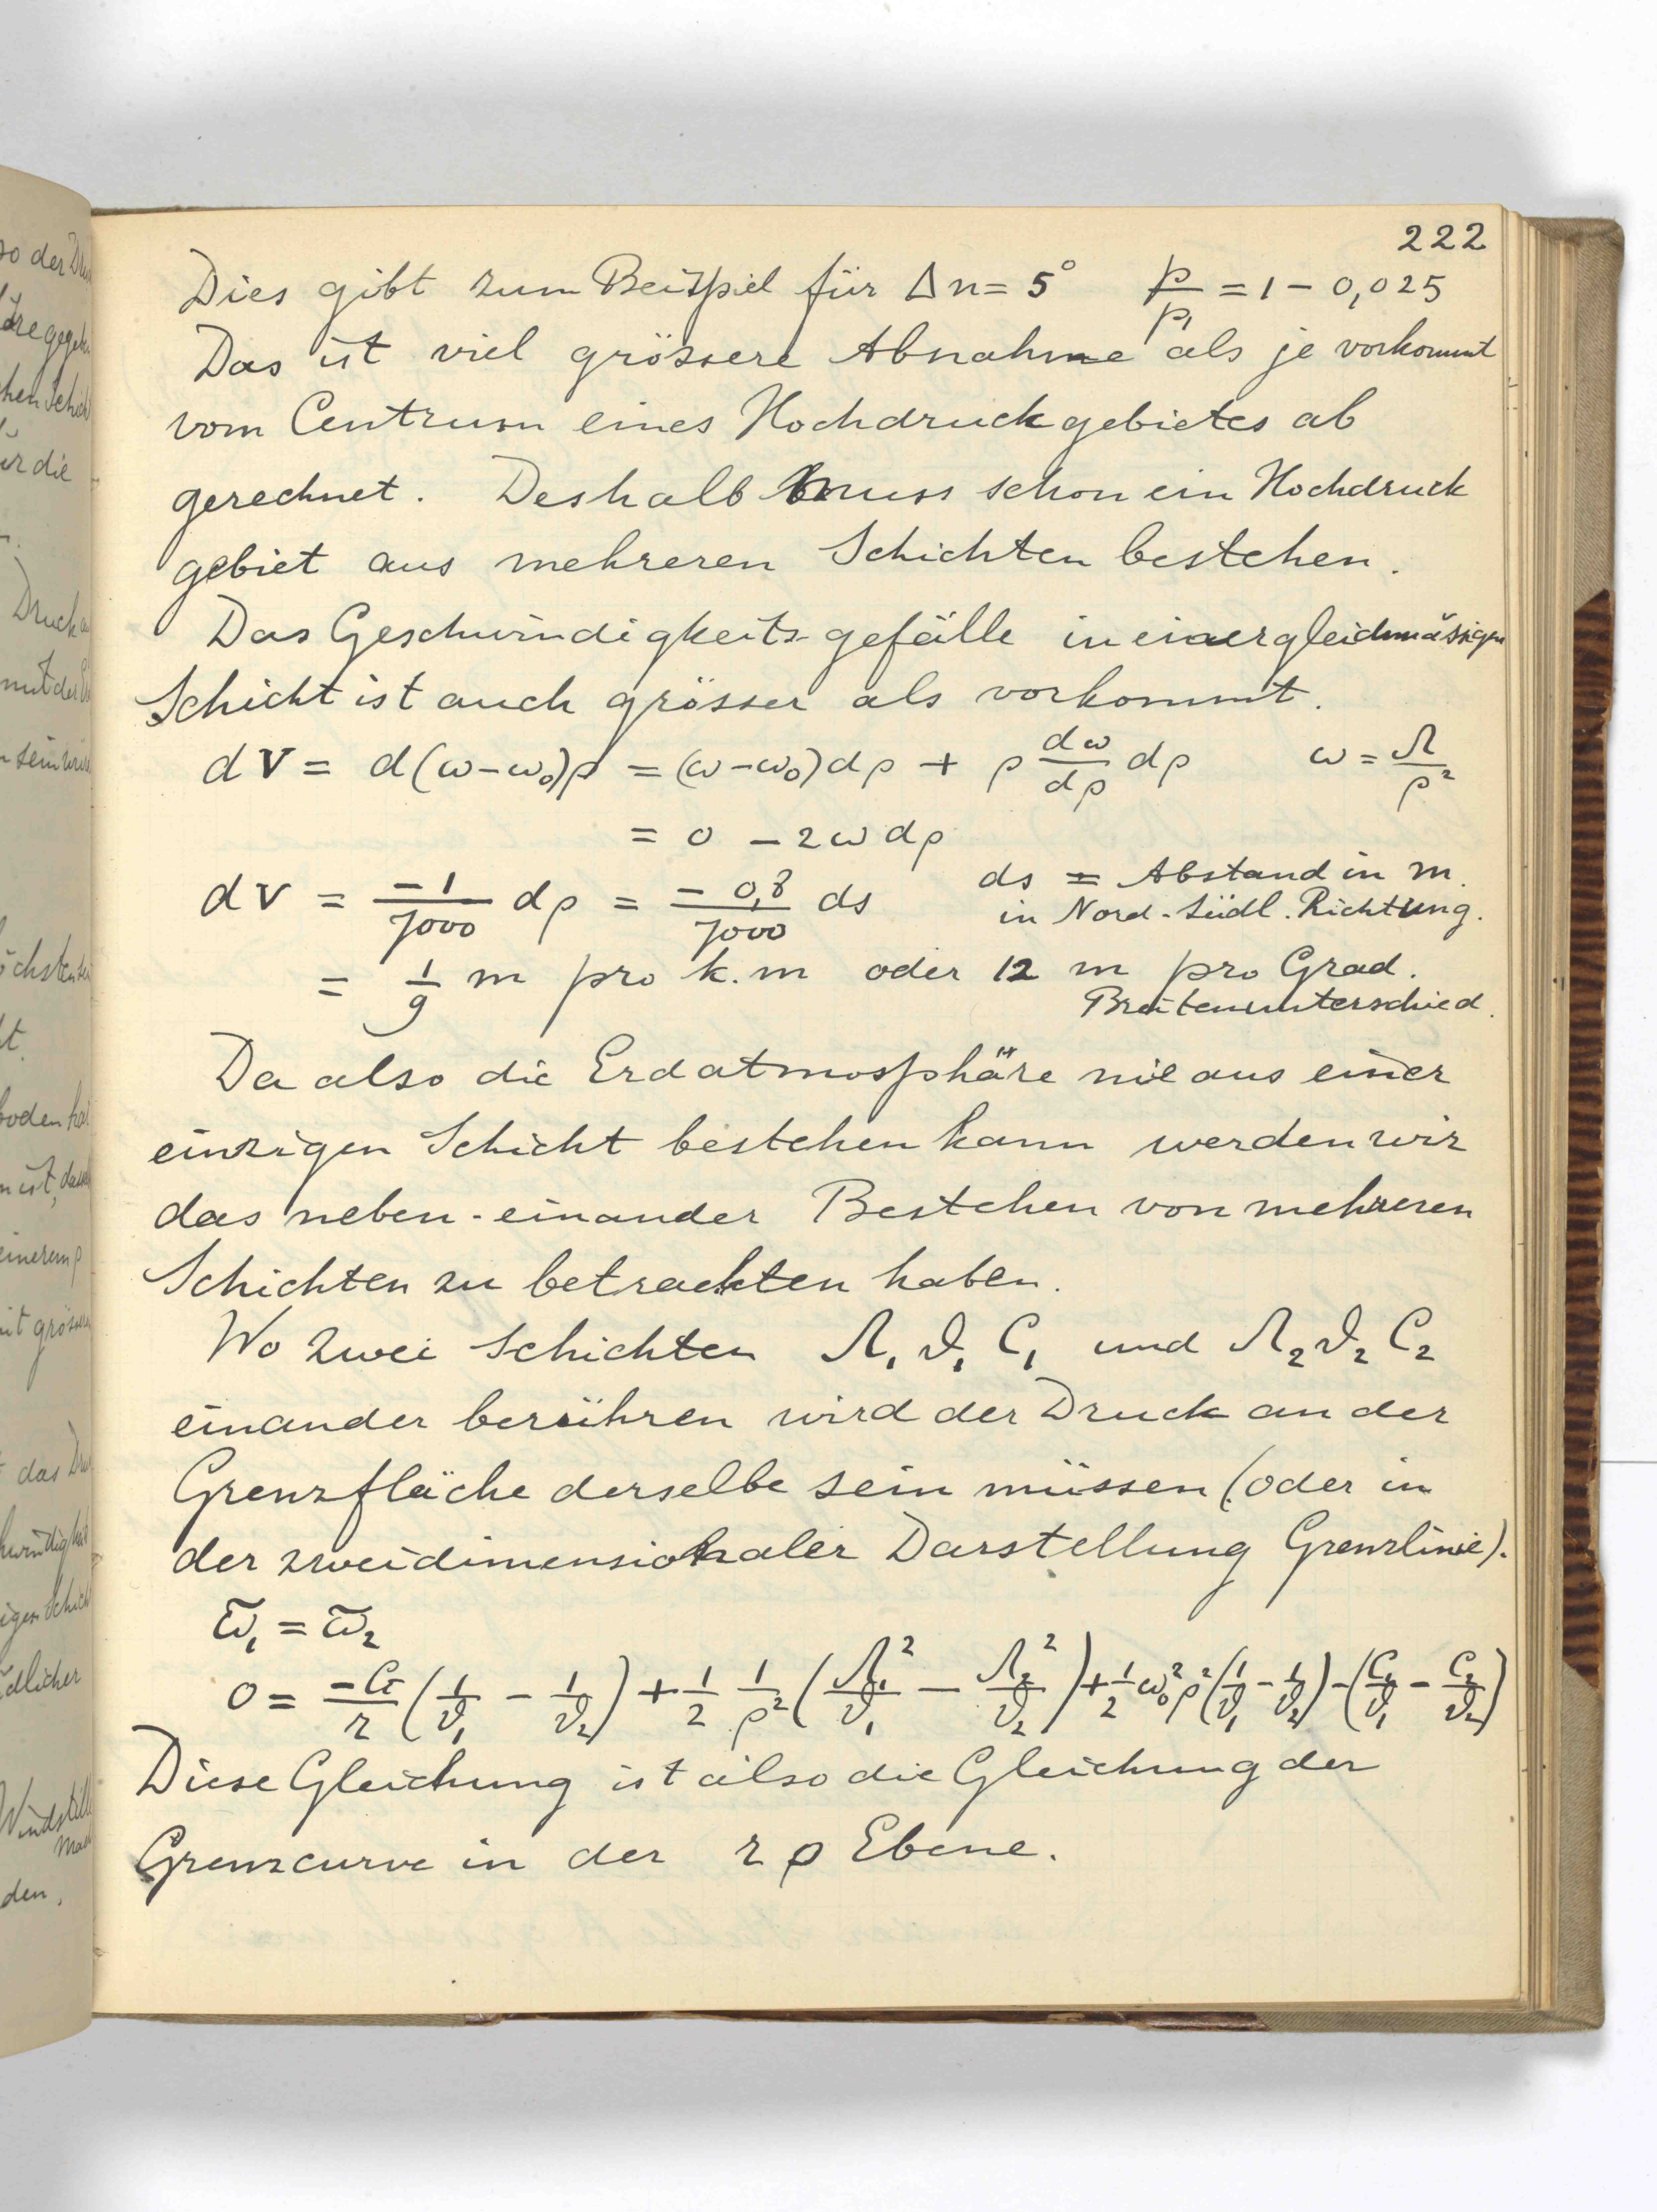 222
Dies gibt zum Beispiel für Δn = 5° p/p₁ = 1 − 0,025
Das ist viel grössere Abnahme als je vorkommt
vom Centrum eines Hochdruckgebietes ab
gerechnet. Deshalb muss schon ein Hochdruck
gebiet aus mehreren Schichten bestehen.
Das Geschwindigkeits-gefälle in einer gleichmässigen
Schicht ist auch grösser als vorkommt.
dV = d(ω−ω₀)ρ = (ω−ω₀)dρ + ρ dω/dρ dρ ω = Λ/ρ²
= 0 − 2ω dρ
dV = −1/7000 dρ = −0,8/7000 ds ds = Abstand in m.
in Nord-Südl. Richtung.
= 1/9 m pro k.m oder 12 m pro Grad.
Breitenunterschied.
Da also die Erdatmosphäre nie aus einer
einzigen Schicht bestehen kann werden wir
das neben-einander Bestehen von mehreren
Schichten zu betrachten haben.
Wo zwei Schichten Λ₁ ϑ₁ C₁ und Λ₂ ϑ₂ C₂
einander berühren wird der Druck an der
Grenzfläche derselbe sein müssen (oder in
der zweidimensionaler Darstellung Grenzlinie).
ϖ₁ = ϖ₂
0 = −G/r (1/ϑ₁ − 1/ϑ₂) + 1/2 1/ρ² (Λ₁²/ϑ₁ − Λ₂²/ϑ₂) + 1/2 ω₀²ρ² (1/ϑ₁ − 1/ϑ₂) − (C₁/ϑ₁ − C₂/ϑ₂)
Diese Gleichung ist also die Gleichung der
Grenzcurve in der r ρ Ebene.